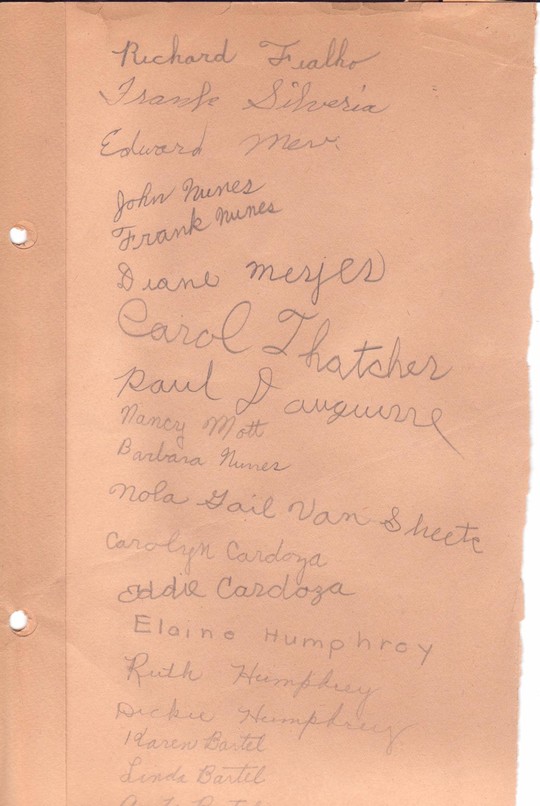 Richard Fialho
Frank Silveria
Edward
John Nunes
Frank Nunes
Diane
Carol Thatcher
Paul
Nancy Mott
Barbara Nunes
Nola Gail Van Sheetz
Carolyn Cardoza
Eddie Cardoza
Elaine Humphrey
Ruth Humphrey
Dickie Humphrey
Karen Bartel
Linda Bartel